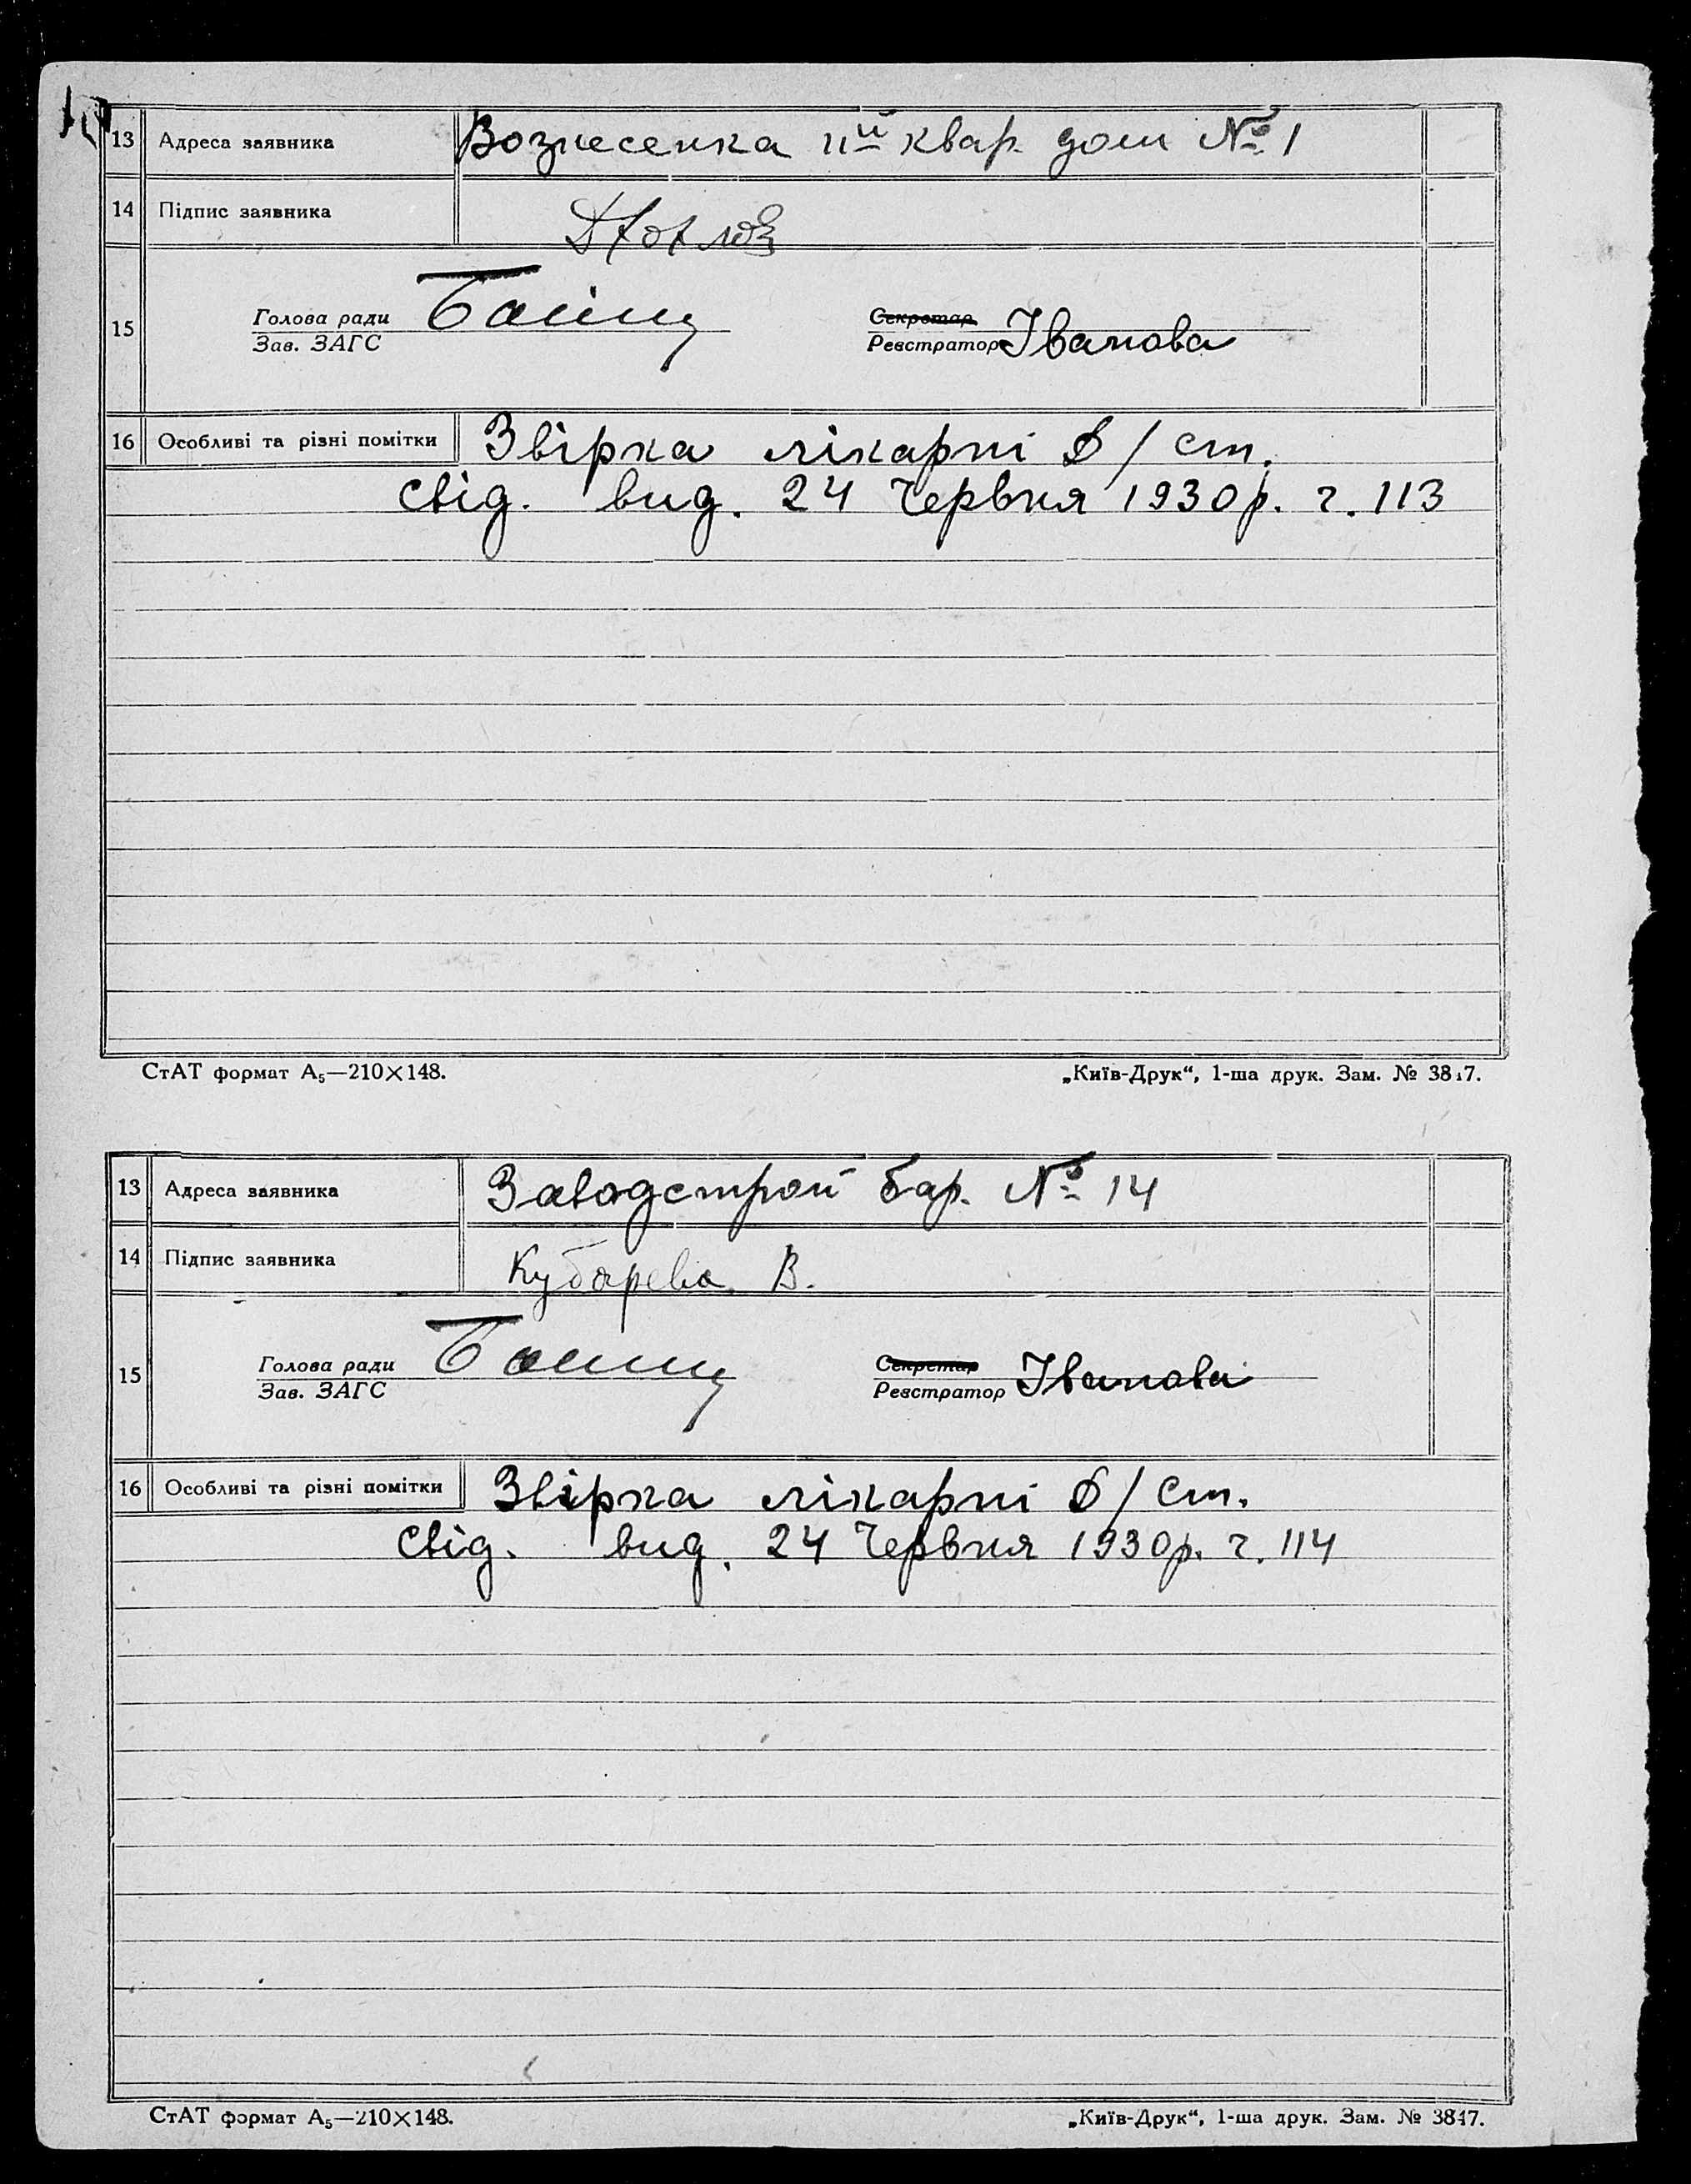 13 Адреса заявника Вознесенка 11ий квар. дом № 1
14 Підпис заявника
15 Голова ради Секретар
Зав. ЗАГС Реєстратор Іванова
16 Особливі та різні помітки Звірка лікарні Д/ст.
свід. вид. 24 Червня 1930р. ч. 113
СтАТ формат А₅—210×148. „Київ-Друк“, 1-ша друк. Зам. № 3817.
13 Адреса заявника Заводстрой бар. № 14
14 Підпис заявника Кубарева В.
15 Голова ради Секретар
Зав. ЗАГС Реєстратор Іванова
16 Особливі та різні помітки Звірка лікарні Д/ст.
свід. вид. 24 Червня 1930р. ч. 114
СтАТ формат А₅—210×148. „Київ-Друк“, 1-ша друк. Зам. № 3817.